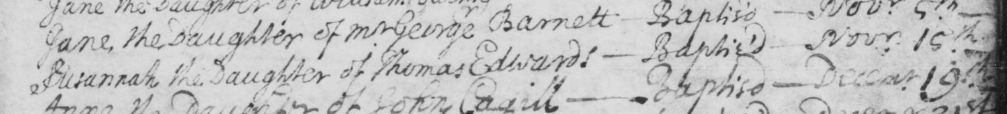 Jane the Daughter of William Baptis'd — Novr. 5th
Jane, the Daughter of mr George Barnett Baptis'd Novr. 15th
Susannah the Daughter of Thomas Edwards — Baptis'd — Decemr 19th
Anne the Daughter of John Cagill — Baptis'd Decemr 21st